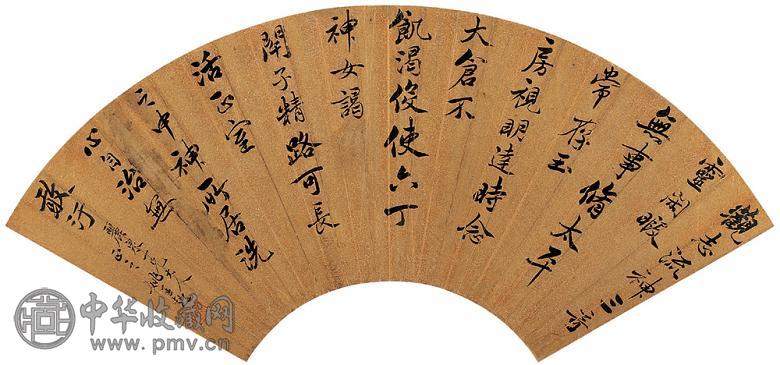 觀志流神三奇
靈閒暇
無事脩太平
常存玉
房視明達時念
大倉不
飢渴役使六丁
神女謁
閉子精路可長
活正室
之中神所居洗
心自治無
敢汙
中华收藏网
www.pmv.cn